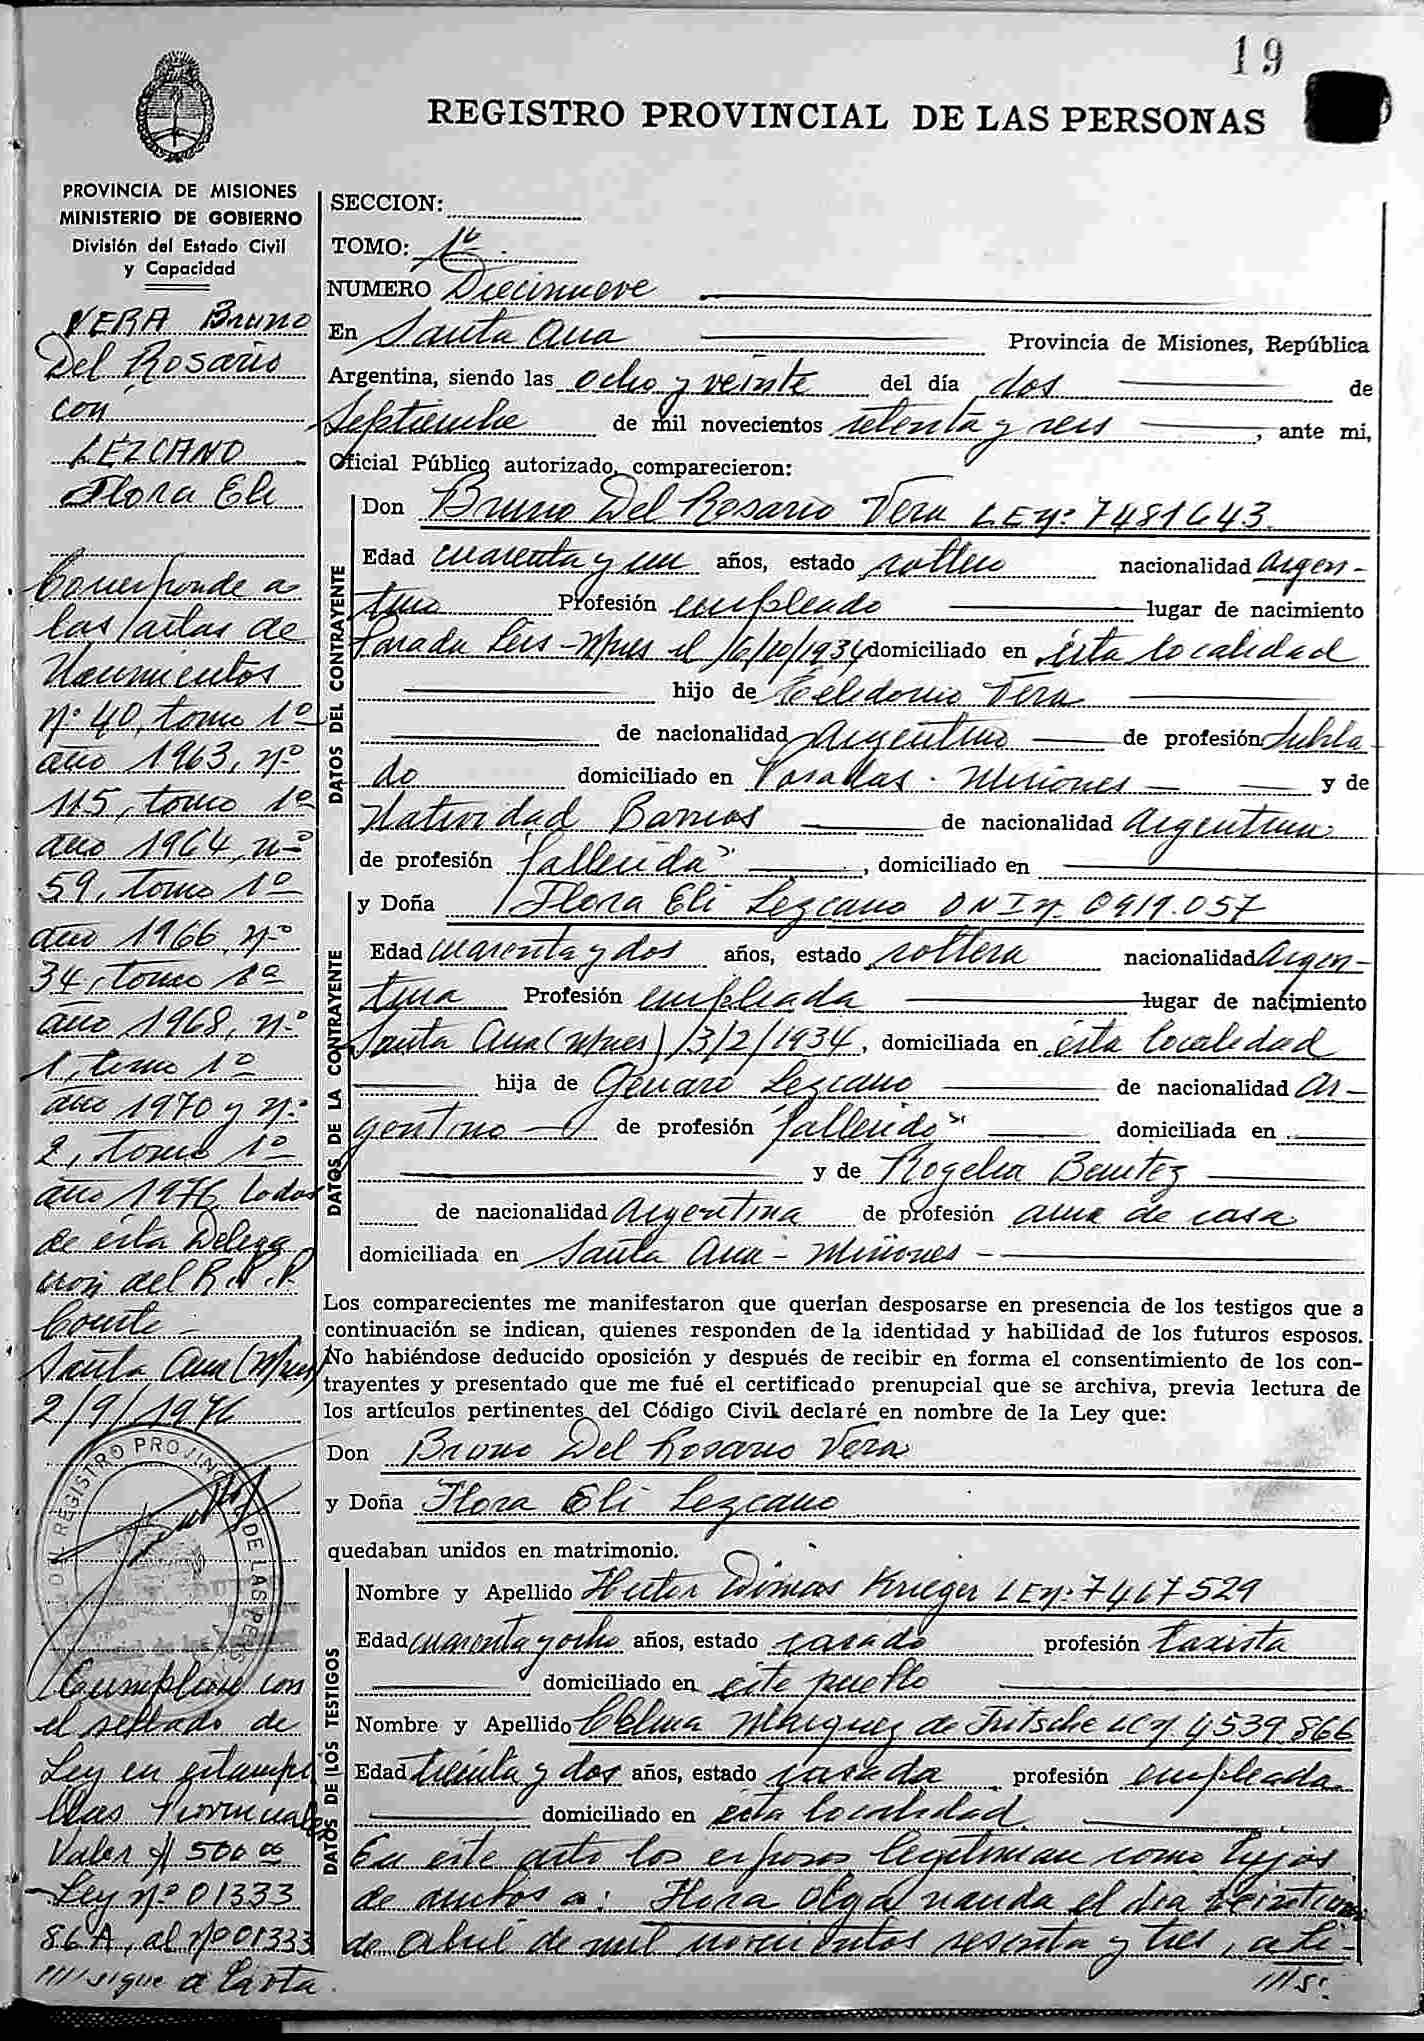 19
REGISTRO PROVINCIAL DE LAS PERSONAS
PROVINCIA DE MISIONES
MINISTERIO DE GOBIERNO
División del Estado Civil
y Capacidad
VERA Bruno
Del Rosario
con
LEZCANO
Flora Eli
Corresponde a
las actas de
Nacimientos
nº 40, tomo 1º
año 1963, nº
115, tomo 1º
año 1964, nº
59, tomo 1º
año 1966, nº
34, tomo 1º
año 1968, nº
1, tomo 1º
año 1970 y nº
2, tomo 1º
año 1976, todos
de ésta Delega
ción del R.P.P.
Conste -
Santa Ana (Mnes)
2/9/1976
REGISTRO PROVINCIAL DE LAS PERSONAS
Cumplase con
el sellado de
Ley en estampi
llas Provinciales
Valor $ 500 00
- Ley nº 01333
86A, al nº 01333
//// sigue a la vta.
SECCION:
TOMO: 1º.
NUMERO Diecinueve
En Santa Ana Provincia de Misiones, República
Argentina, siendo las ocho y veinte del día dos de
Septiembre de mil novecientos setenta y seis, ante mi,
Oficial Público autorizado, comparecieron:
DATOS DEL CONTRAYENTE
Don Bruno Del Rosario Vera LE nº 7481643
Edad cuarenta y un años, estado soltero nacionalidad Argen-
tino Profesión empleado lugar de nacimiento
Parada Leis - Mnes el 16/10/1934 domiciliado en ésta localidad
hijo de Celedonio Vera
de nacionalidad Argentino de profesión Jubila
do domiciliado en Posadas - Misiones y de
Natividad Barrios de nacionalidad Argentina
de profesión "fallecida", domiciliado en
DATOS DE LA CONTRAYENTE
y Doña Flora Eli Lezcano DNI nº 0919.057
Edad cuarenta y dos años, estado soltera nacionalidad Argen-
tina Profesión empleada lugar de nacimiento
Santa Ana (Mnes) 13/2/1934, domiciliada en ésta localidad
hija de Genaro Lezcano de nacionalidad Ar-
gentino de profesión "fallecido" domiciliada en
y de Rogelia Benitez
de nacionalidad Argentina de profesión ama de casa
domiciliada en Santa Ana - Misiones -
Los comparecientes me manifestaron que querían desposarse en presencia de los testigos que a
continuación se indican, quienes responden de la identidad y habilidad de los futuros esposos.
No habiéndose deducido oposición y después de recibir en forma el consentimiento de los con-
trayentes y presentado que me fué el certificado prenupcial que se archiva, previa lectura de
los artículos pertinentes del Código Civil declaré en nombre de la Ley que:
Don Bruno Del Rosario Vera
y Doña Flora Eli Lezcano
quedaban unidos en matrimonio.
DATOS DE LOS TESTIGOS
Nombre y Apellido Hector Dimas Krieger LE nº 7467529
Edad cuarenta y ocho años, estado casado profesión taxista
domiciliado en este pueblo
Nombre y Apellido Celma Marquez de Fritsche LC nº 4539.866
Edad treinta y dos años, estado casada profesión empleada
domiciliado en ésta localidad
En este acto los esposos legitiman como hijos
de ambos a: Flora Olga nacida el dia
de Abril de mil novecientos sesenta y tres, a Li-
////s.